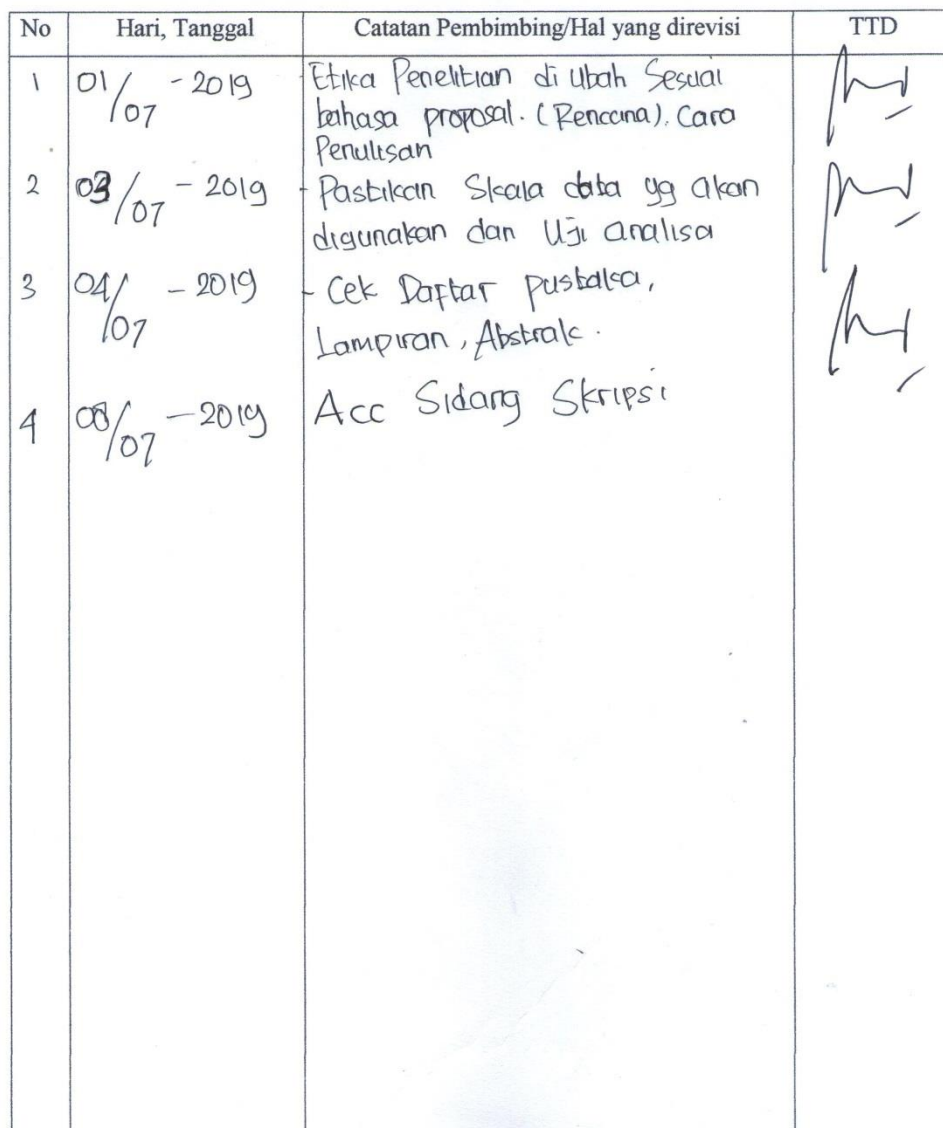 No Hari, Tanggal Catatan Pembimbing/Hal yang direvisi TTD
1 01/07 - 2019 Etika Penelitian di Ubah Sesuai
bahasa proposal. (Rencana). Cara
Penulisan
2 03/07 - 2019 - Pastikan Skala data yg akan
digunakan dan Uji analisa
3 04/07 - 2019 - Cek Daftar pustaka,
Lampiran, Abstrak.
4 08/07 - 2019 Acc Sidang Skripsi